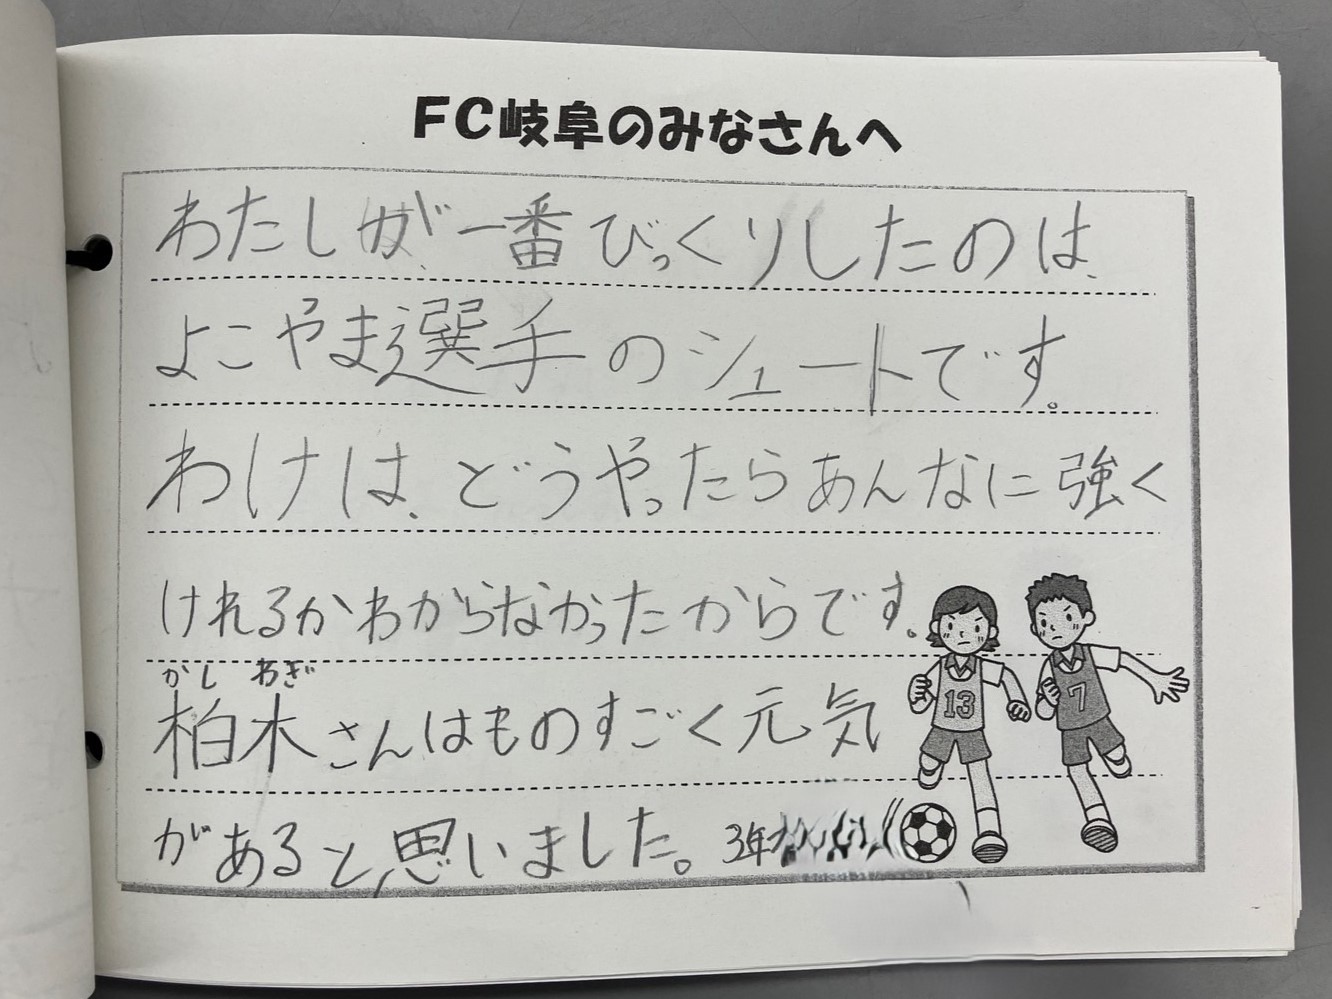 FC岐阜のみなさんへ
わたしが一番びっくりしたのは、
よこやま選手のシュートです。
わけは、どうやったらあんなに強く
けれるかわからなかったからです。
かし わぎ
柏木さんはものすごく元気
があると、思いました。 3年
13
7